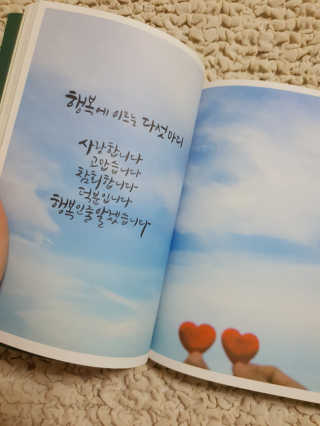 행복에 이르는 다섯마디
사랑합니다
고맙습니다
함께합니다
덕분입니다
행복인줄알겠습니다